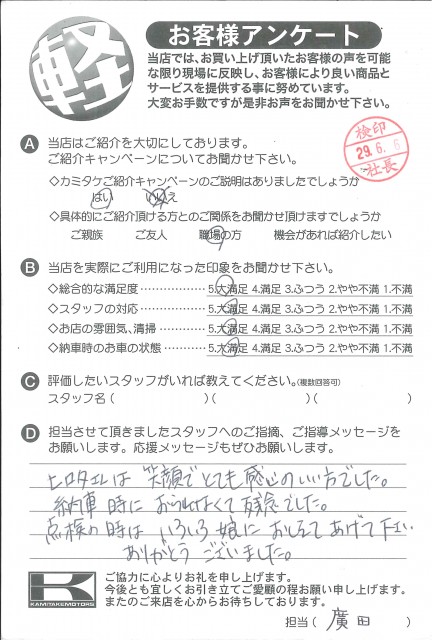 軽
お客様アンケート
当店では、お買い上げ頂いたお客様の声を可能
な限り現場に反映し、お客様により良い商品と
サービスを提供する事に努めています。
大変お手数ですが是非お声をお聞かせ下さい。
検印
29.6.6
社長
A 当店はご紹介を大切にしております。
ご紹介キャンペーンについてお聞かせ下さい。
◇カミタケご紹介キャンペーンのご説明はありましたでしょうか
はい いいえ
◇具体的にご紹介頂ける方とのご関係をお聞かせ頂けますでしょうか
ご親族 ご友人 職場の方 機会があれば紹介したい
B 当店を実際にご利用になった印象をお聞かせ下さい。
◇総合的な満足度 ……………… 5.大満足 4.満足 3.ふつう 2.やや不満 1.不満
◇スタッフの対応 ……………… 5.大満足 4.満足 3.ふつう 2.やや不満 1.不満
◇お店の雰囲気、清掃 ………… 5.大満足 4.満足 3.ふつう 2.やや不満 1.不満
◇納車時のお車の状態 ………… 5.大満足 4.満足 3.ふつう 2.やや不満 1.不満
C 評価したいスタッフがいれば教えてください。(複数回答可)
スタッフ名( )( )( )
D 担当させて頂きましたスタッフへのご指摘、ご指導メッセージを
お願いします。応援メッセージもぜひお願いします。
笑顔でとても感じのいい方でした。
納車時におられなくて残念でした。
点検の時は いろいろ娘に おしえてあげて下さい
ありがとう ございました。
K
KAMITAKEMOTORS
ご協力に心よりお礼を申し上げます。
今後とも宜しくお引き立てご愛顧の程お願い申し上げます。
またのご来店を心からお待ちしております。
担当( 廣田 )